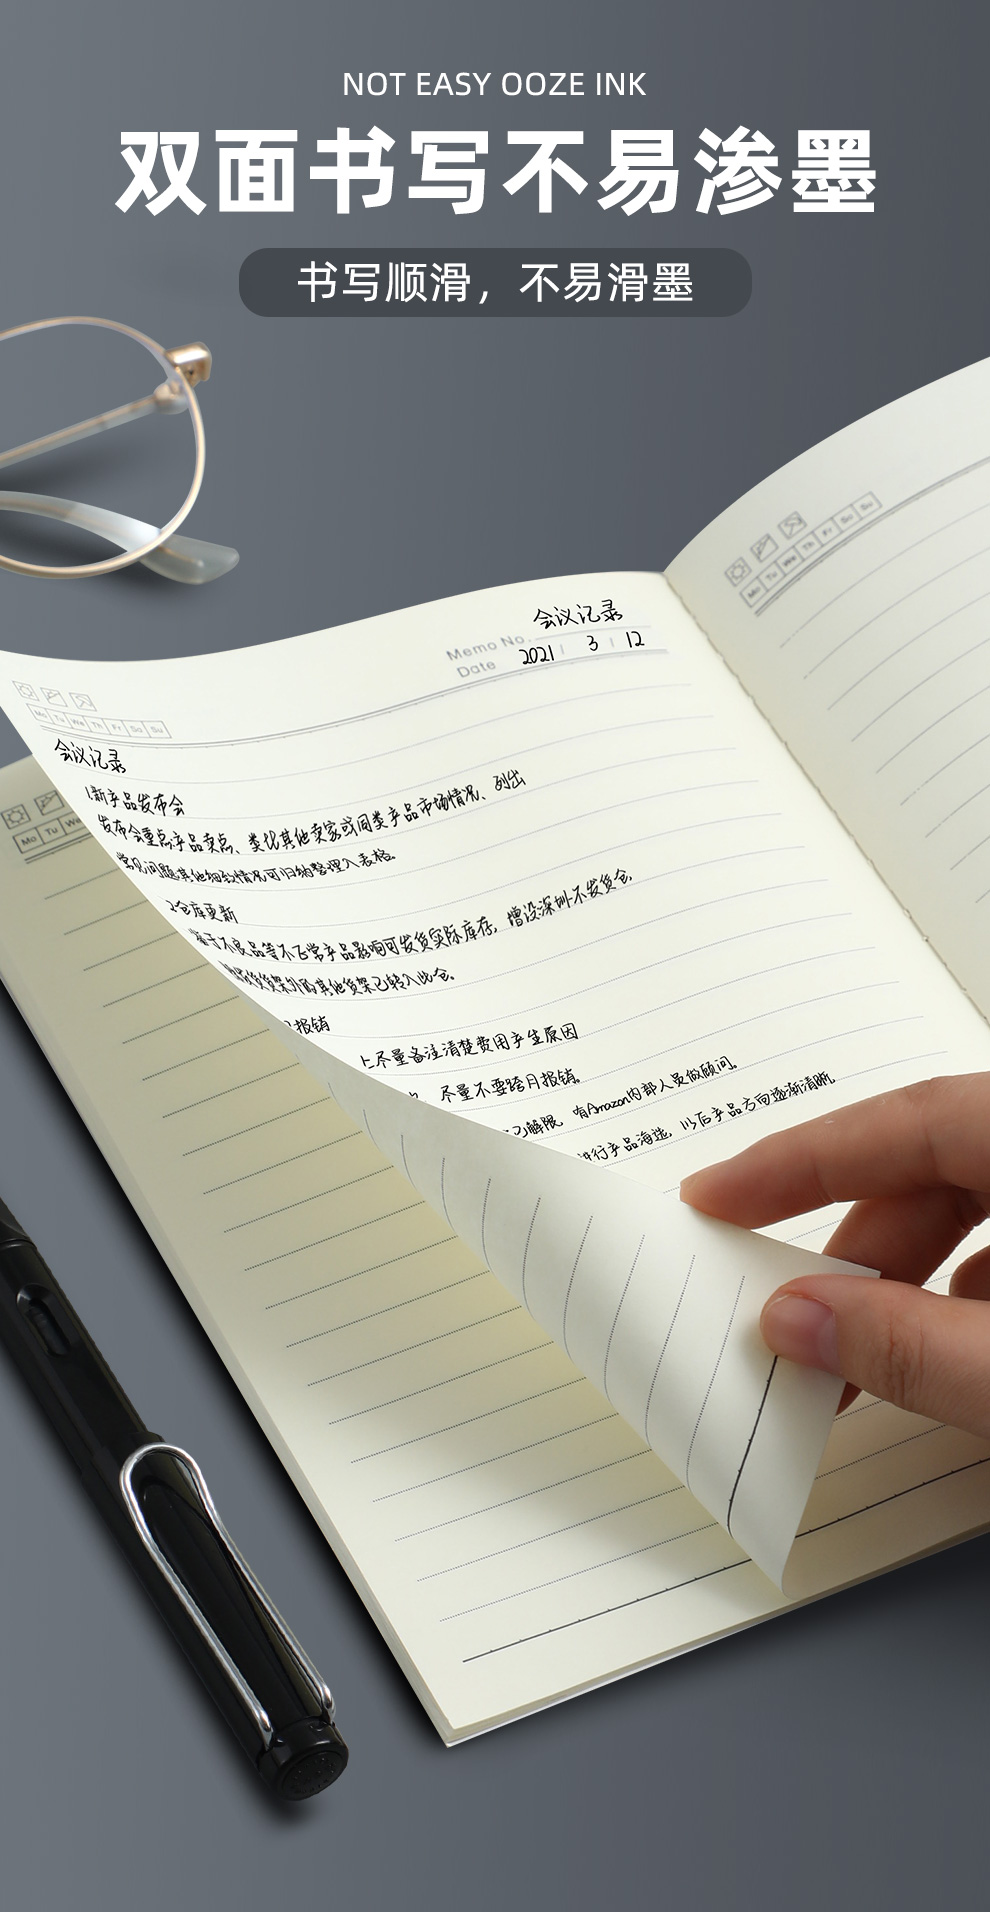 NOT EASY OOZE INK
双面书写不易渗墨
书写顺滑，不易滑墨
Mo Tu We Th Fr Sa Su
会议记录
Memo No.
Date 2021 3 12
Mo Tu We Th Fr Sa Su
会议记录
1.新产品发布会
发布会重点产品卖点、类比其他卖家或同类产品市场情况、列出
常见问题其他细致情况可归纳整理入表格。
Mo Tu We
2仓库更新
基于不良品等不正常产品影响可发货实际库存，增设深圳-不发货仓，
货架外的其他货架已转入此仓。
报销
上尽量备注清楚费用产生原因
尽量不要跨月报销。
已解限，有Amazon内部人员做顾问。
进行产品海选，以后产品方向逐渐清晰